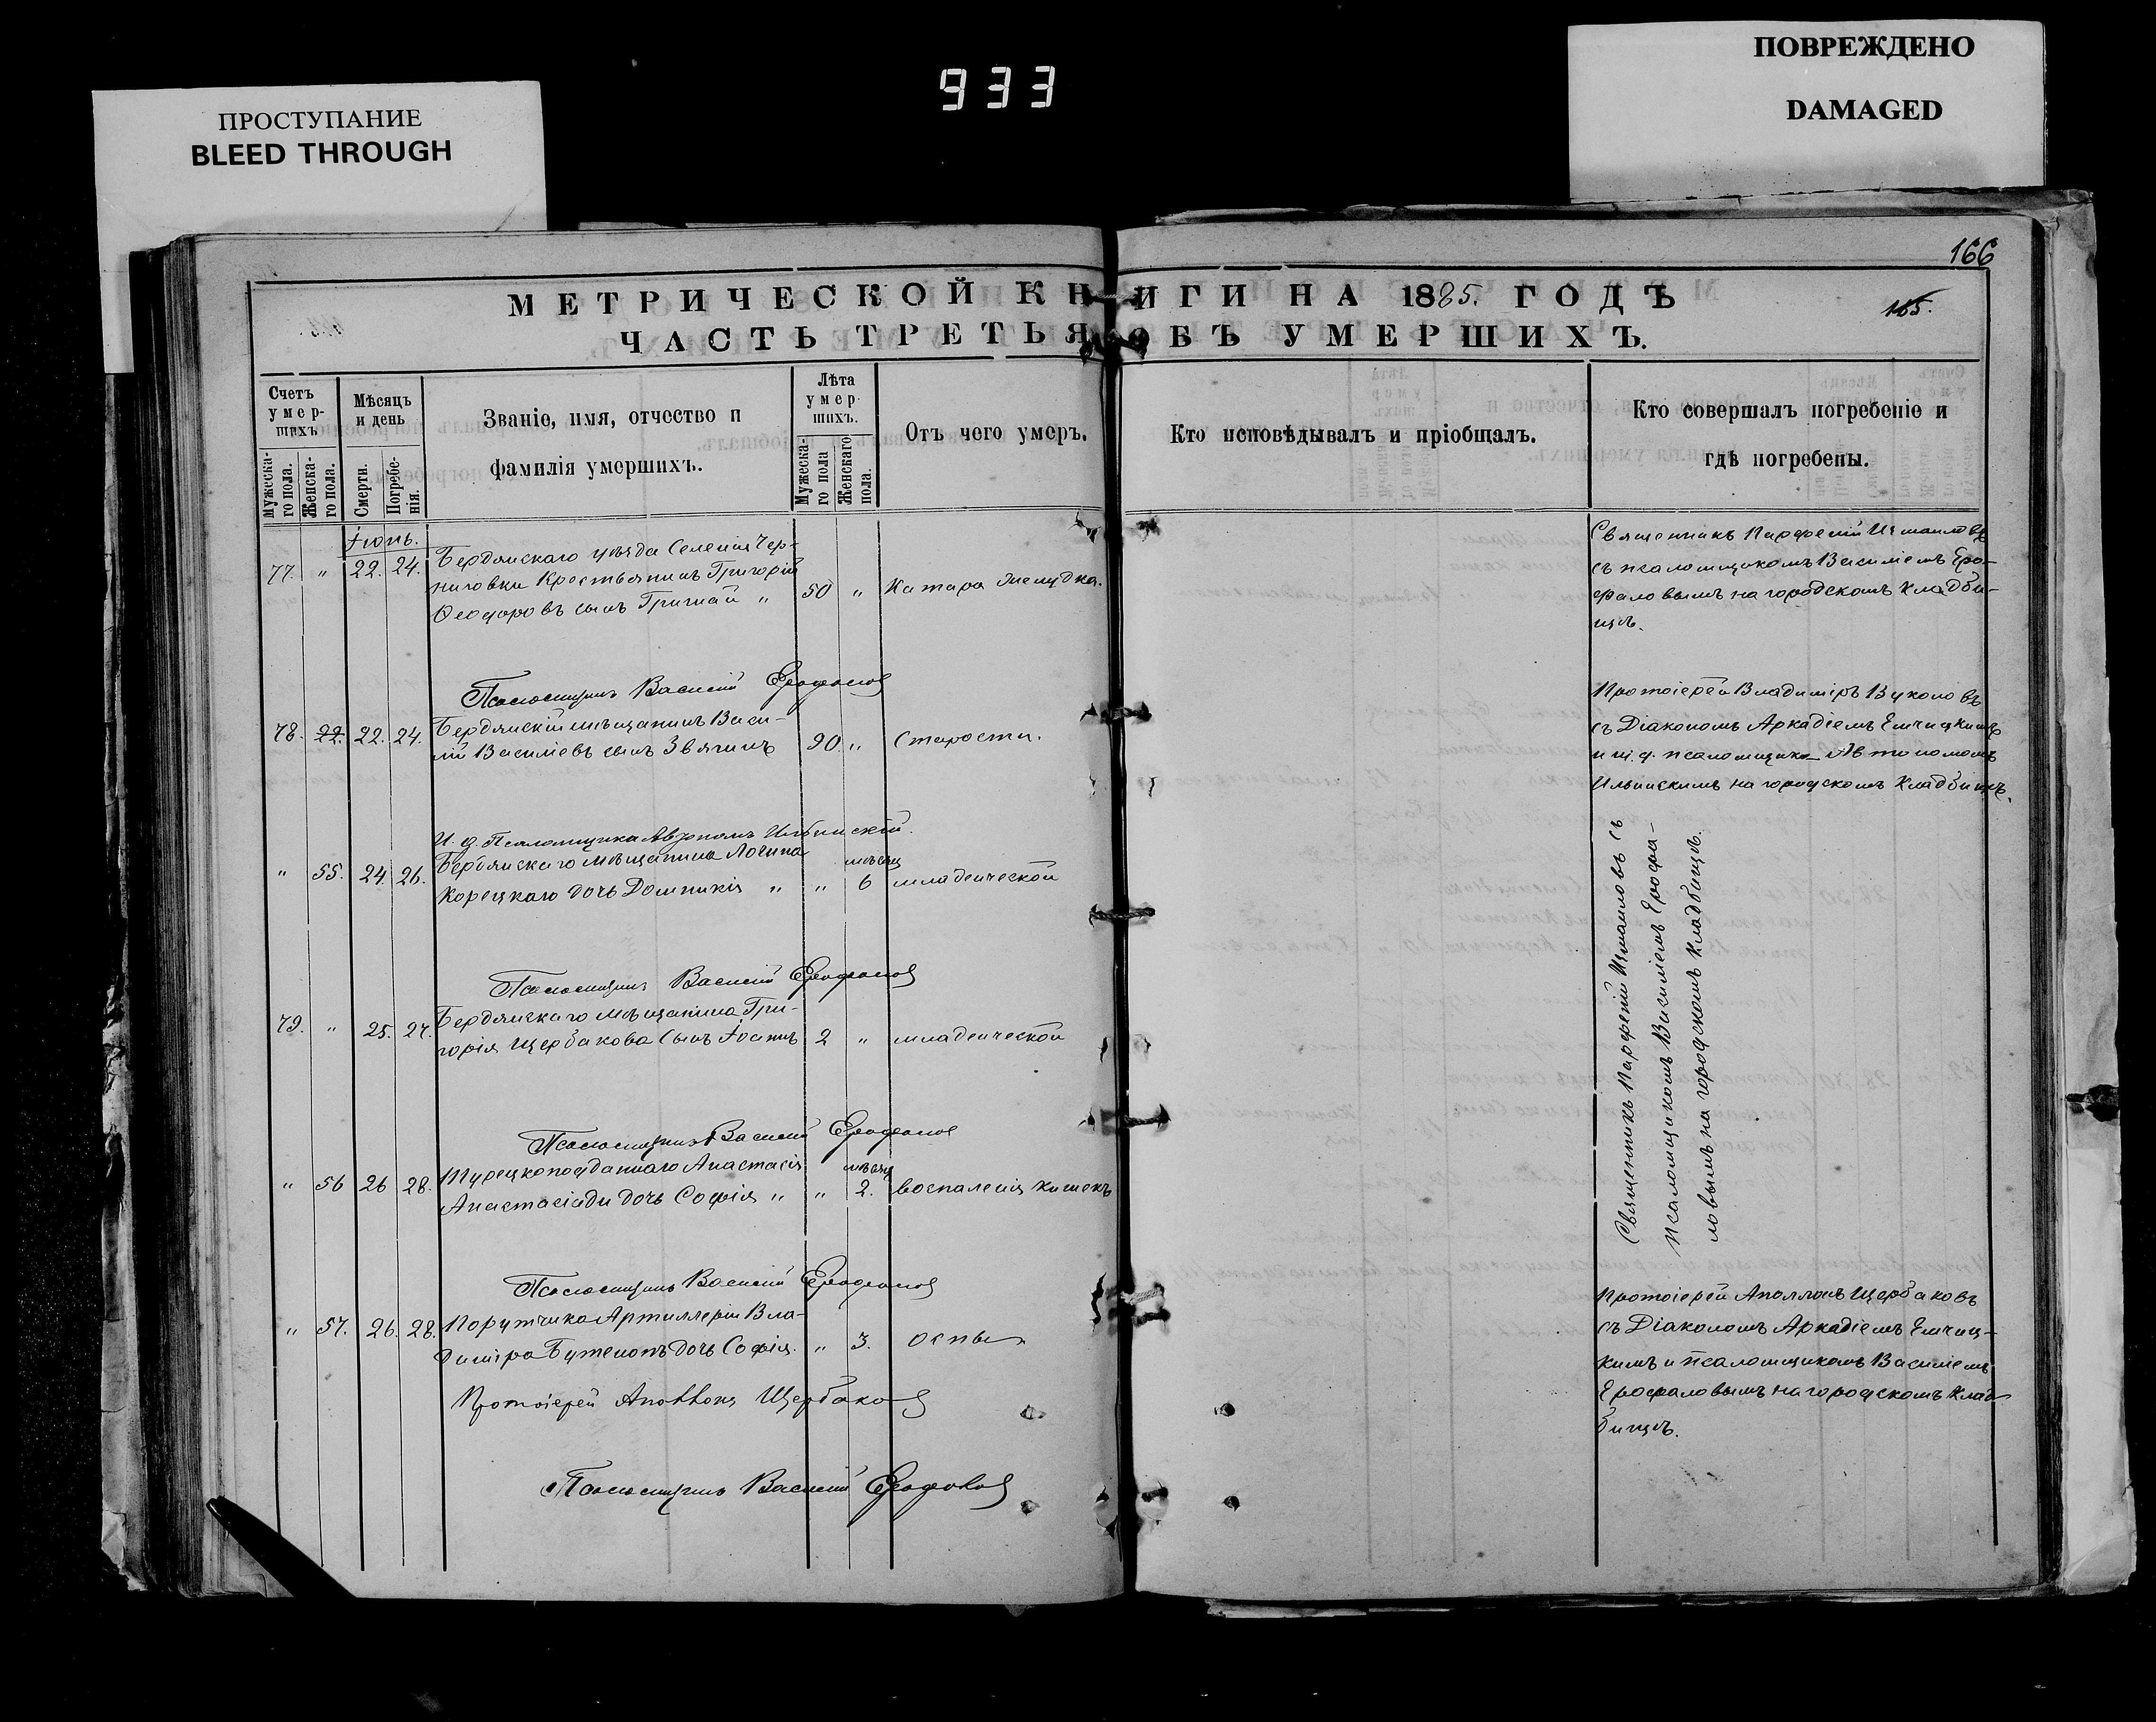 933
ПРОСТУПАНИЕ
BLEED THROUGH
ПОВРЕЖДЕНО
DAMAGED
166
МЕТРИЧЕСКОЙ КНИГИ НА 1885. ГОДЪ
165.
ЧАСТЬ ТРЕТЬЯ ОБЪ УМЕРШИХЪ.
Счетъ умершихъ
Мужескаго пола.
Женскаго пола.
Мѣсяцъ и день
Смерти.
Погребенія.
Званіе, имя, отчество и
фамилія умершихъ.
Лѣта умершихъ.
Мужескаго пола
Женскаго пола.
Отъ чего умеръ.
Кто исповѣдывалъ и пріобщалъ.
Кто совершалъ погребеніе и
гдѣ погребены.
Іюнь.
77. " 22. 24.
Бердянскаго уѣзда Селенія Чер-
ниговки Крестьянинъ Григорій
Ѳеодоровъ сынъ " 50 " Катара желудка.
Священникъ Парфеній Измаиловъ
съ псаломщикомъ Василіемъ Еро-
фаловымъ на городскомъ кладби-
щѣ.
Псаломщикъ Василій Ерофаловъ
78. 22. 22. 24.
Бердянскій мѣщанинъ Васи-
лій Василіевъ сынъ Звягинъ 90 " Старости.
Протоіерей Владиміръ Вуколовъ
съ Діакономъ Аркадіемъ
и и. д. псаломщика Автономомъ
Ильинскимъ на городскомъ кладбищѣ.
И. д. Псаломщика Автономъ Ильинскій.
" 55. 24. 26.
Бердянскаго мѣщанина Логина
Корецкаго дочь Домникія " " 6 мѣсяц младенческой
Псаломщикъ Василій Ерофаловъ
79. " 25. 27.
Бердянскаго мѣщанина Гри-
горія Щербакова сынъ Іоаннъ 2 " младенческой
Псаломщикъ Василій Ерофаловъ
" 56 26 28.
Турецкоподданнаго Анастасія
Анастасіади дочь Софія " " 2. мѣсяц воспаленія кишекъ
Священникъ Парфеній Измаиловъ съ
псаломщикомъ Василіемъ Ерофа-
ловымъ на городскомъ кладбищѣ.
Псаломщикъ Василій Ерофаловъ
" 57. 26. 28.
Поручика Артиллеріи Вла-
диміра дочь Софія. " 3. оспы
Протоіерей Аполлонъ Щербаковъ
съ Діакономъ Аркадіемъ
кимъ и псаломщикомъ Василіемъ
Ерофаловымъ на городскомъ клад-
бищѣ.
Протоіерей Аполлонъ Щербаковъ
Псаломщикъ Василій Ерофаловъ